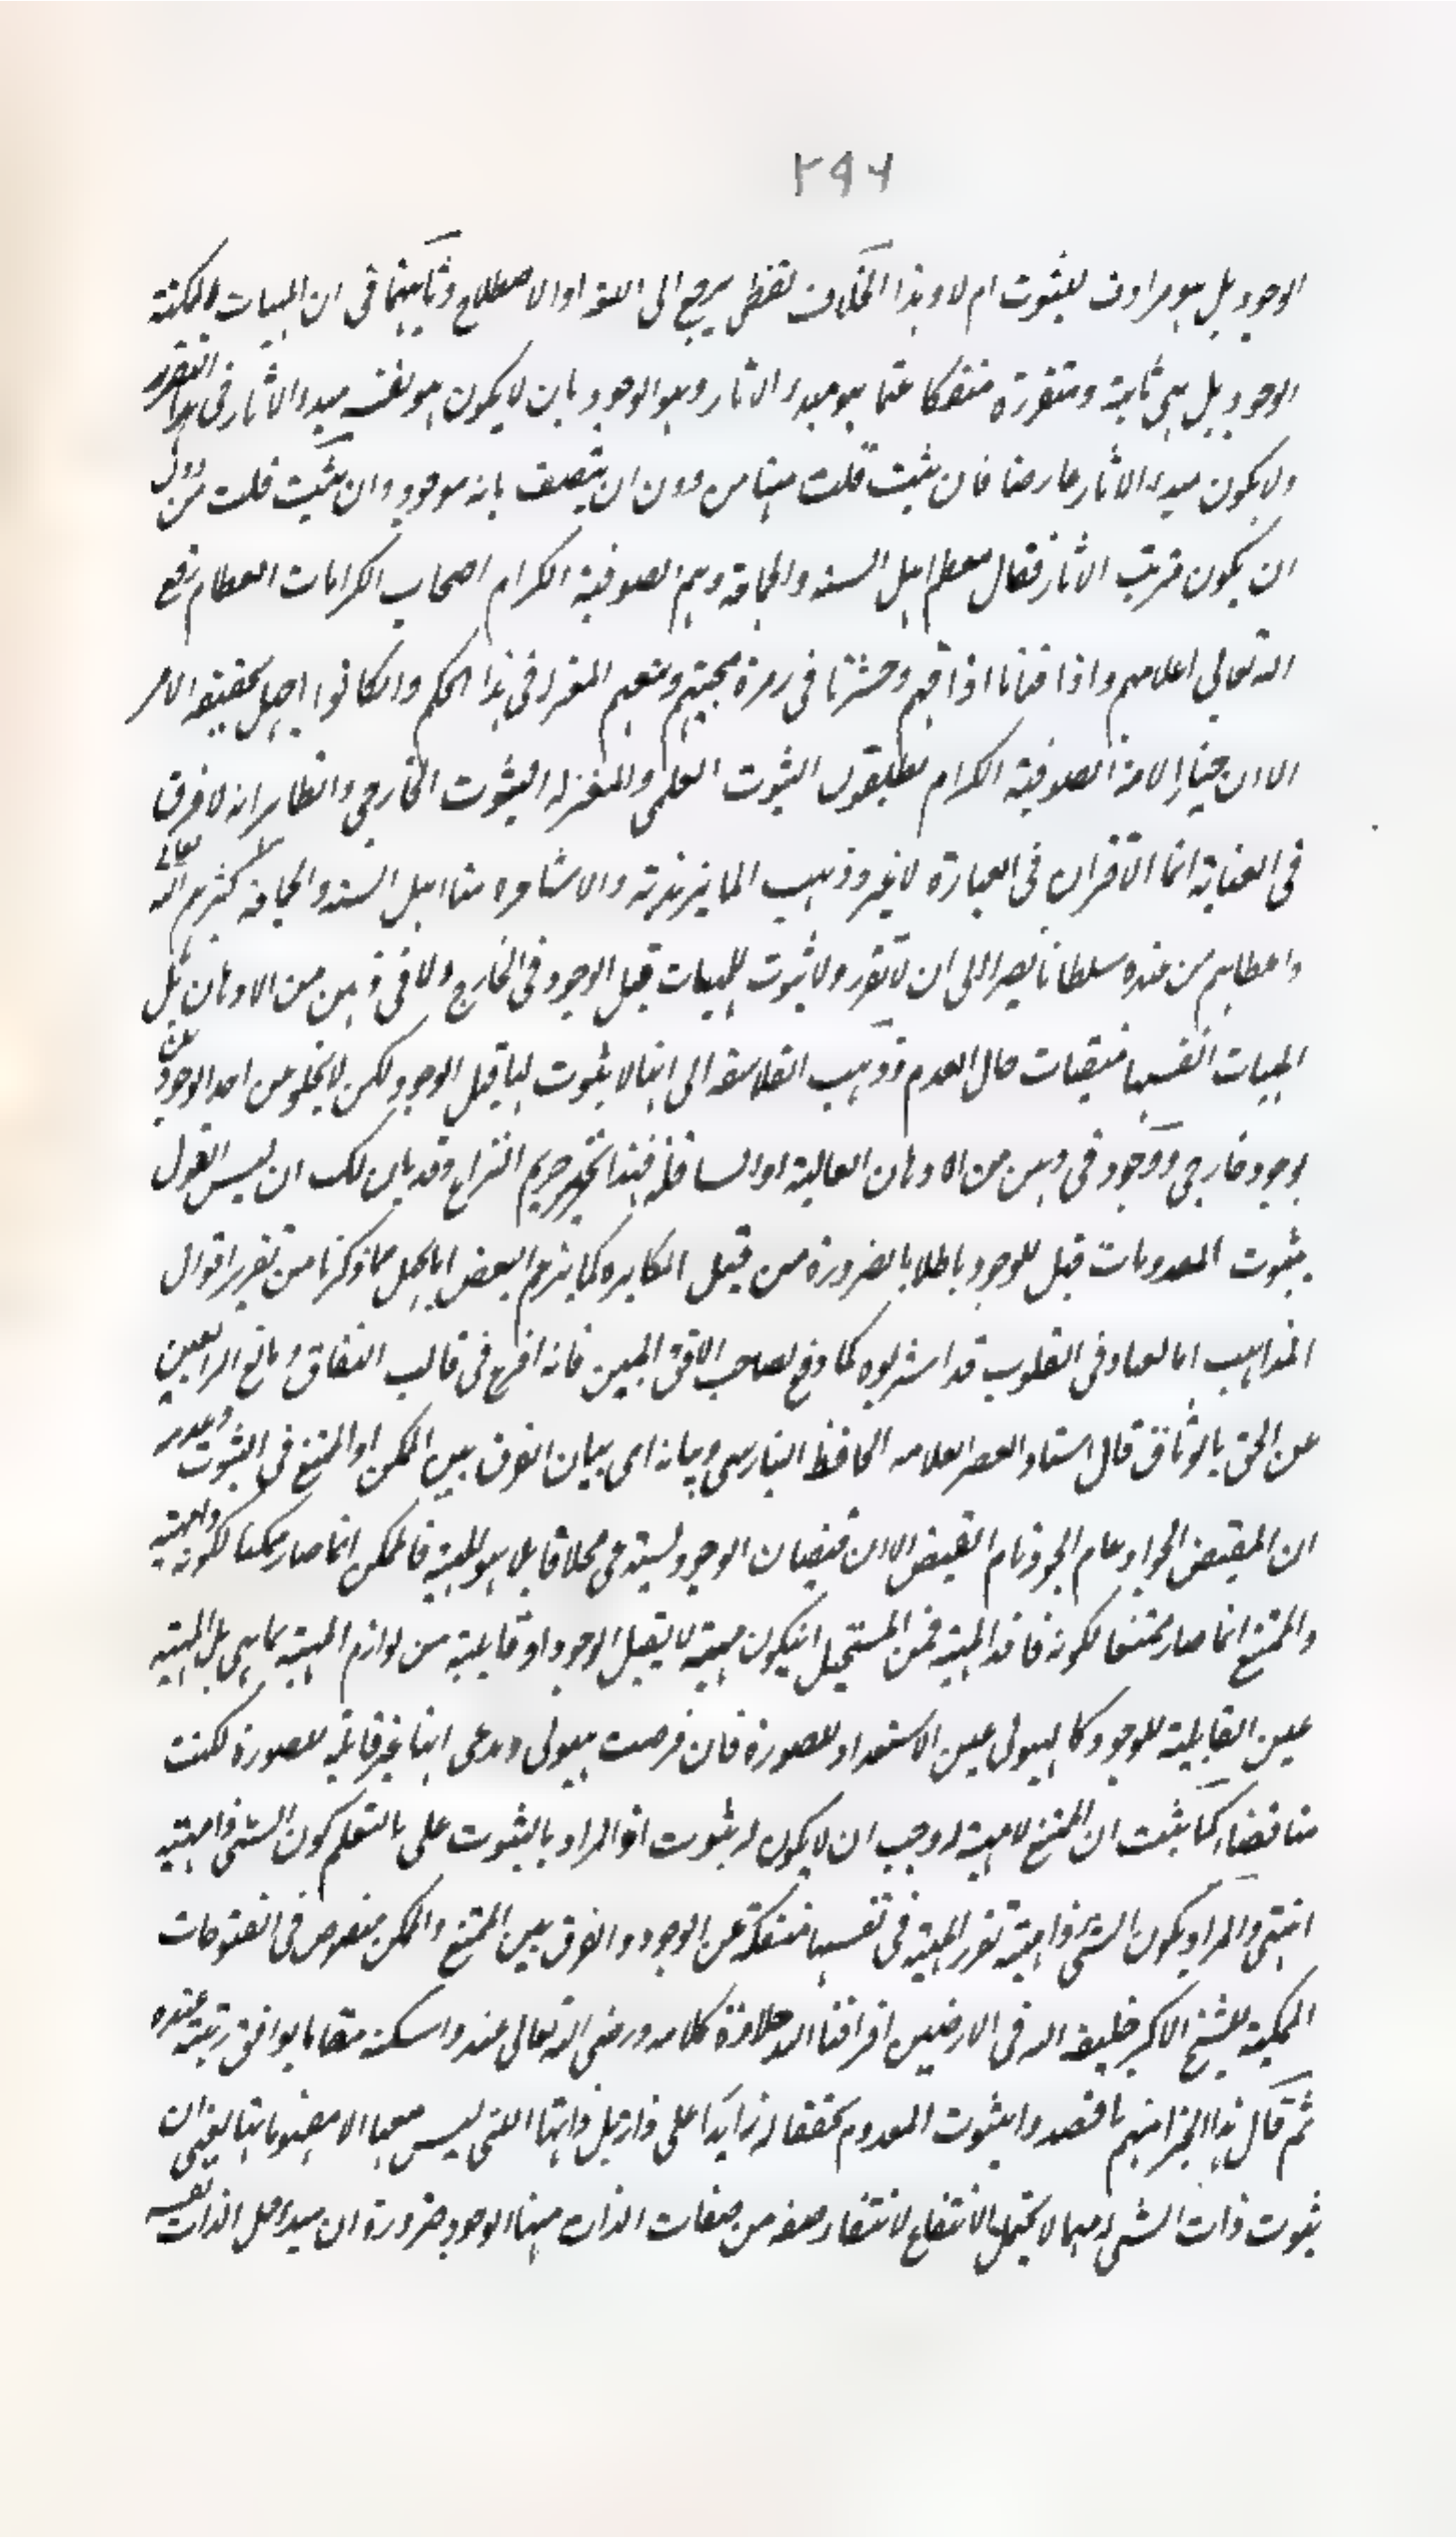 ٢٩٦
الوجود بل هو مرادف لثبوت ام لا وهذا الخلاف لفظی یرجع الی اللغة او الاصطلاح وثانیهما فی ان المهیات الممکنة
الوجود بل هی ثابتة ومتقررة منفکا عما هو مبدء الاثار وهو الوجود بان لا یکون هو نفسه مبدء الاثار فی هذا التقرر
ولا یکون مبدء الاثار عارضا فان شئت قلت مهیتا من دون ان یتصف بانه موجود وان شئت قلت من دون
ان یکون مترتب الاثار فقال معظم اهل السنة والجماعة وهم الصوفیة الکرام اصحاب الکرامات العظام رفع
الله تعالی اعلامهم واذاقنا ما اذاقهم وحشرنا فی زمرة محبتهم ومنهم المعتزلة فی هذا الحکم وان کانوا اجهل بحقیقة الامر
الا ان الصوفیة الکرام یطلقون الثبوت العلمی والمعتزلة الثبوت الخارجی والظاهر انه لا فرق
فی العنایة انما الافتراق فی العبارة لا غیر وذهب الماتریدیة والاشاعرة منا اهل السنة والجماعة کثرهم الله تعالی
واعطاهم من عنده سلطانا نصیرا الی ان لا تقرر ولا ثبوت للمهیات قبل الوجود فی الخارج ولا فی ذهن من الاذهان بل
المهیات انفسها منتفیات حال العدم وذهب الفلاسفة الی انها لا ثبوت لها قبل الوجود لکن لا یخلو عن احد الوجودین
بوجود خارجی ووجود فی ذهن من الاذهان العالیة او السافلة فهذا تحریر حریم النزاع وقد بان لک ان لیس القول
بثبوت المعدومات قبل الوجود باطلا بالضرورة من قبیل المکابرة کما یزعم البعض اما الجهل مما ذکرنا من تقریر اقوال
المذاهب اما لعناد فی القلوب قد اشربوه کما وقع لصاحب الافق المبین فانه افرغ فی قالب النفاق
عن الحق بالوثاق قال استاد العصر العلامة الحافظ البنارسی وبیانه ای بیان الفرق بین الممکن والممتنع فی الثبوت وعدمه
ان المفیض الجواد عام الجود تام الفیض الا ان فیضان الوجود یستدعی محلا قابلا هو المهیة فالممکن انما صار ممکنا لکونه ذا مهیة
والممتنع انما صار ممتنعا لکونه فاقد المهیة فمن المستحیل ان یکون مهیة لا یقبل الوجود او قابلیة من لوازم المهیة بما هی بل المهیة
عین القابلیة للوجود کالهیولی عین الاستعداد للصورة فان فرضت هیولی وتدعی انها غیر قابلة للصورة لکنت
مناقضا کما ثبت ان الممتنع لا مهیة له وجب ان لا یکون له ثبوت اذ المراد بالثبوت علی ما لتعلم کون الشیء ذا مهیة
انتهی والمراد بکون الشیء ذا مهیة تقرر المهیة فی نفسها منفکة عن الوجود والفرق بین الممتنع والممکن منصوص فی الفتوحات
المکیة للشیخ الاکبر خلیفة الله فی الارضین اذاقنا الله حلاوة کلامه ورضی الله تعالی عنه واسکنه مقاما یوافق رتبته عنده
ثم قال هذا الحبر انهم ما قصدوا بثبوت المعدوم تحققا له زایدا علی ذاته بل ذاتها التی لیس معها الا مفهوماتها یعنی ان
ثبوت ذات الشیء له مهیا لا یحتمل الانتفاء لانتفاء صفة من صفات الذات منها الوجود ضرورة ان مبدء حمل الذات نفسه